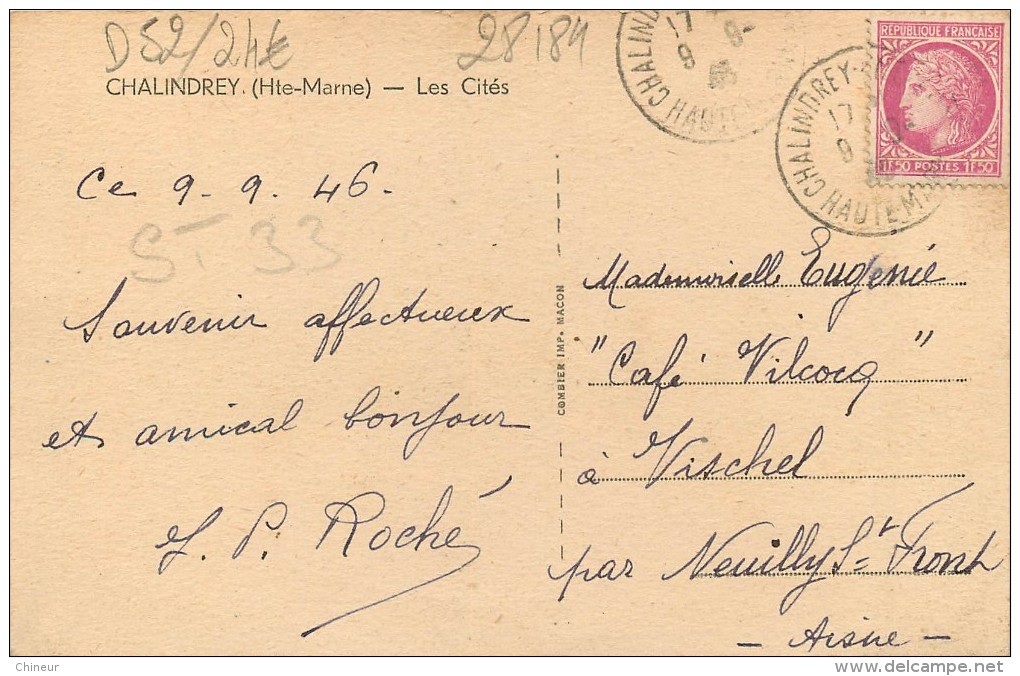 D52/24€
28184
CHALINDREY. (Hte-Marne) — Les Cités
Ce 9. 9. 46.
ST 33
Souvenir affectueux
et amical bonjour
J. P. Roché
COMBIER IMP. MACON
CHALINDREY
HAUTE
17
9
CHALINDREY
HAUTE MARNE
17
9
RÉPUBLIQUE FRANÇAISE
1F50 POSTES 1F50
Mademoiselle Eugenie
"Café Vilcocq"
à Vischel
par Neuilly St Front
- Aisne -
Chineur
www.delcampe.net